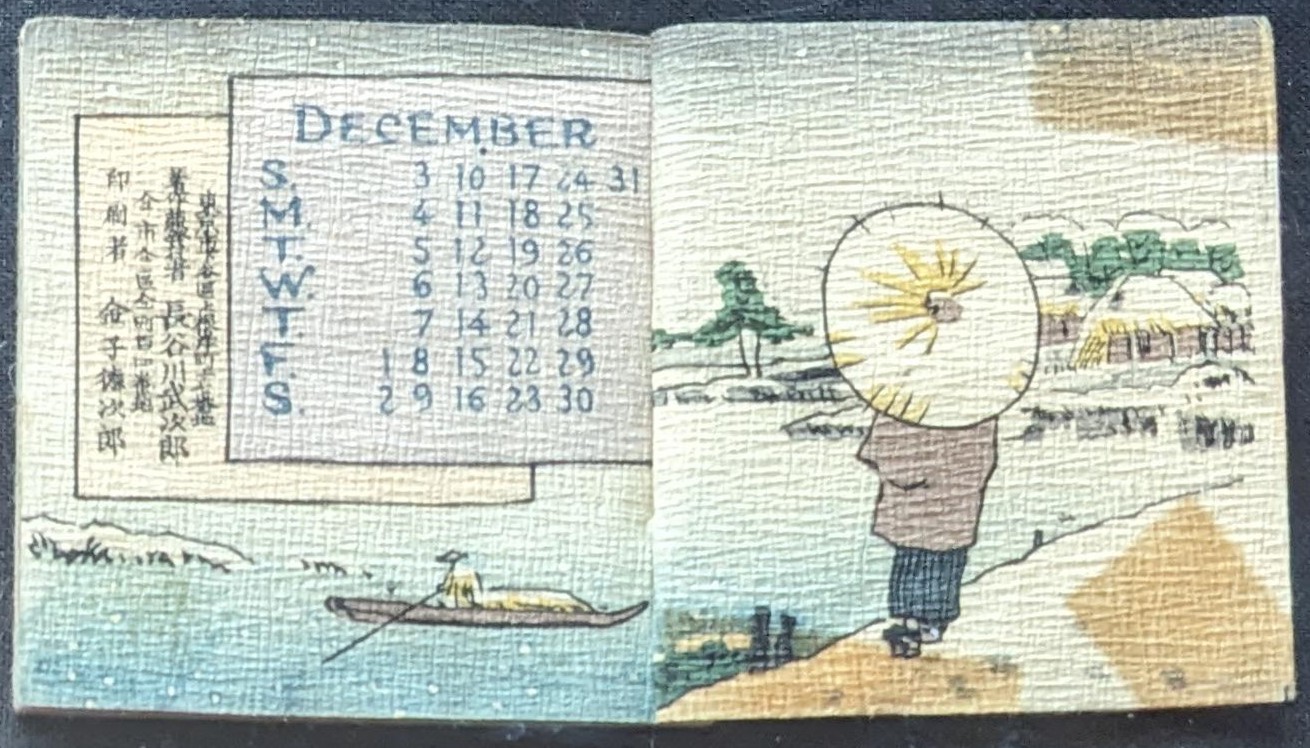 DECEMBER
S. 3 10 17 24 31
M. 4 11 18 25
T. 5 12 19 26
W. 6 13 20 27
T. 7 14 21 28
F. 1 8 15 22 29
S. 2 9 16 23 30
長谷川武次郎
印刷者 金子徳次郎